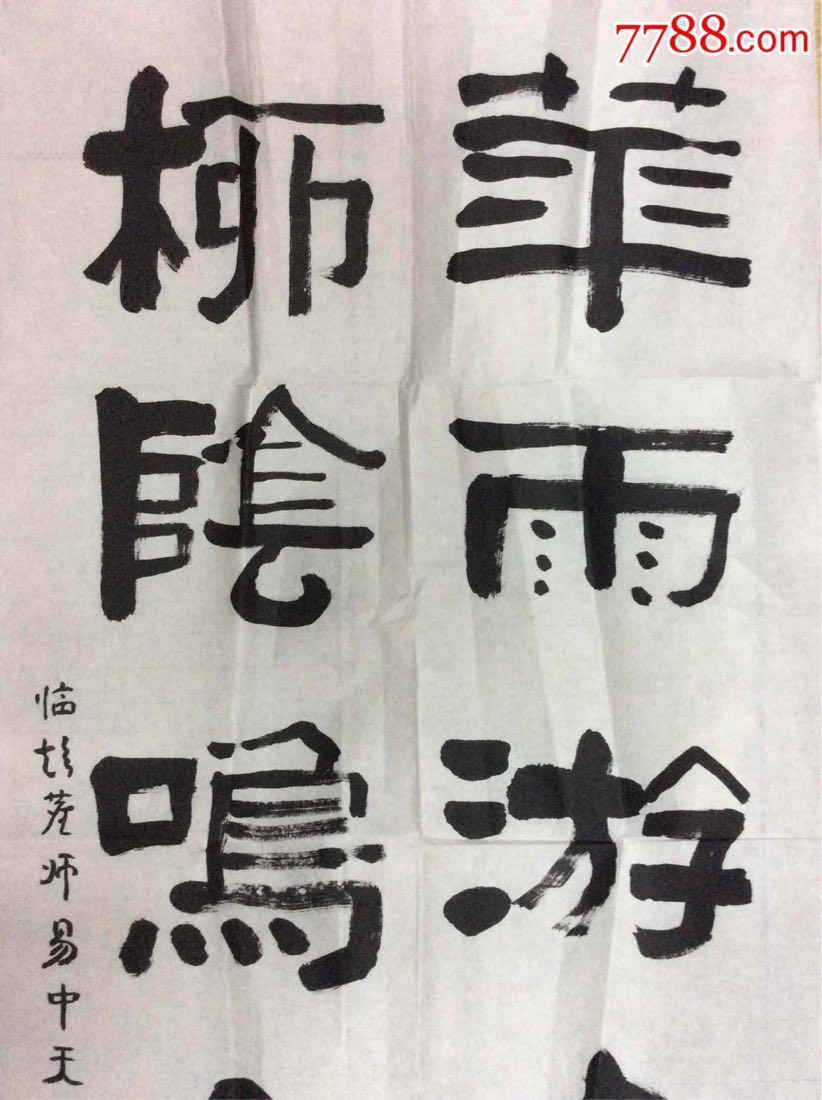 7788.com
華雨游
柳陰鳴
临师易中天